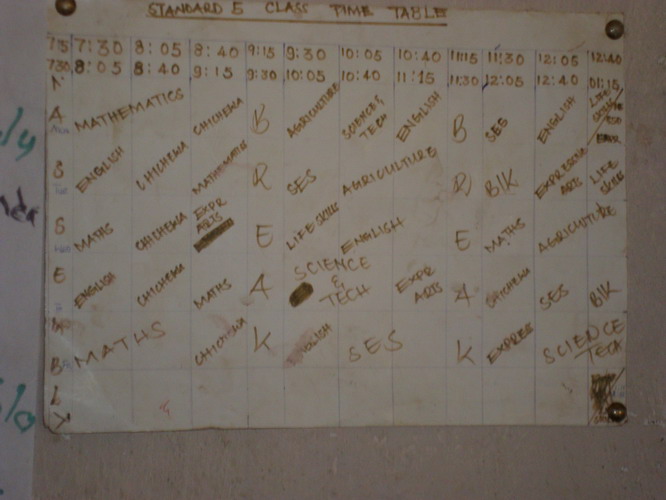 STANDARD 5 CLASS TIME TABLE
7:15 7:30 8:05 8:40 9:15 9:30 10:05 10:40 11:15 11:30 12:05 12:40
7:30 8:05 8:40 9:15 9:30 10:05 10:40 11:15 11:30 12:05 12:40 01:15
A MATHEMATICS CHICHEWA B AGRICULTURE SCIENCE & TECH ENGLISH B SES ENGLISH LIFE
S ENGLISH CHICHEWA MATHEMATICS R SES AGRICULTURE R B/K EXPRESSIVE ARTS LIFE SKILLS
S MATHS CHICHEWA EXPR ARTS E LIFE SKILLS ENGLISH E MATHS AGRICULTURE
E ENGLISH CHICHEWA MATHS A SCIENCE & TECH EXPR ARTS A CHICHEWA SES B/K
B MATHS CHICHEWA K ENGLISH SES K EXPRES SCIENCE TECH
L
Y